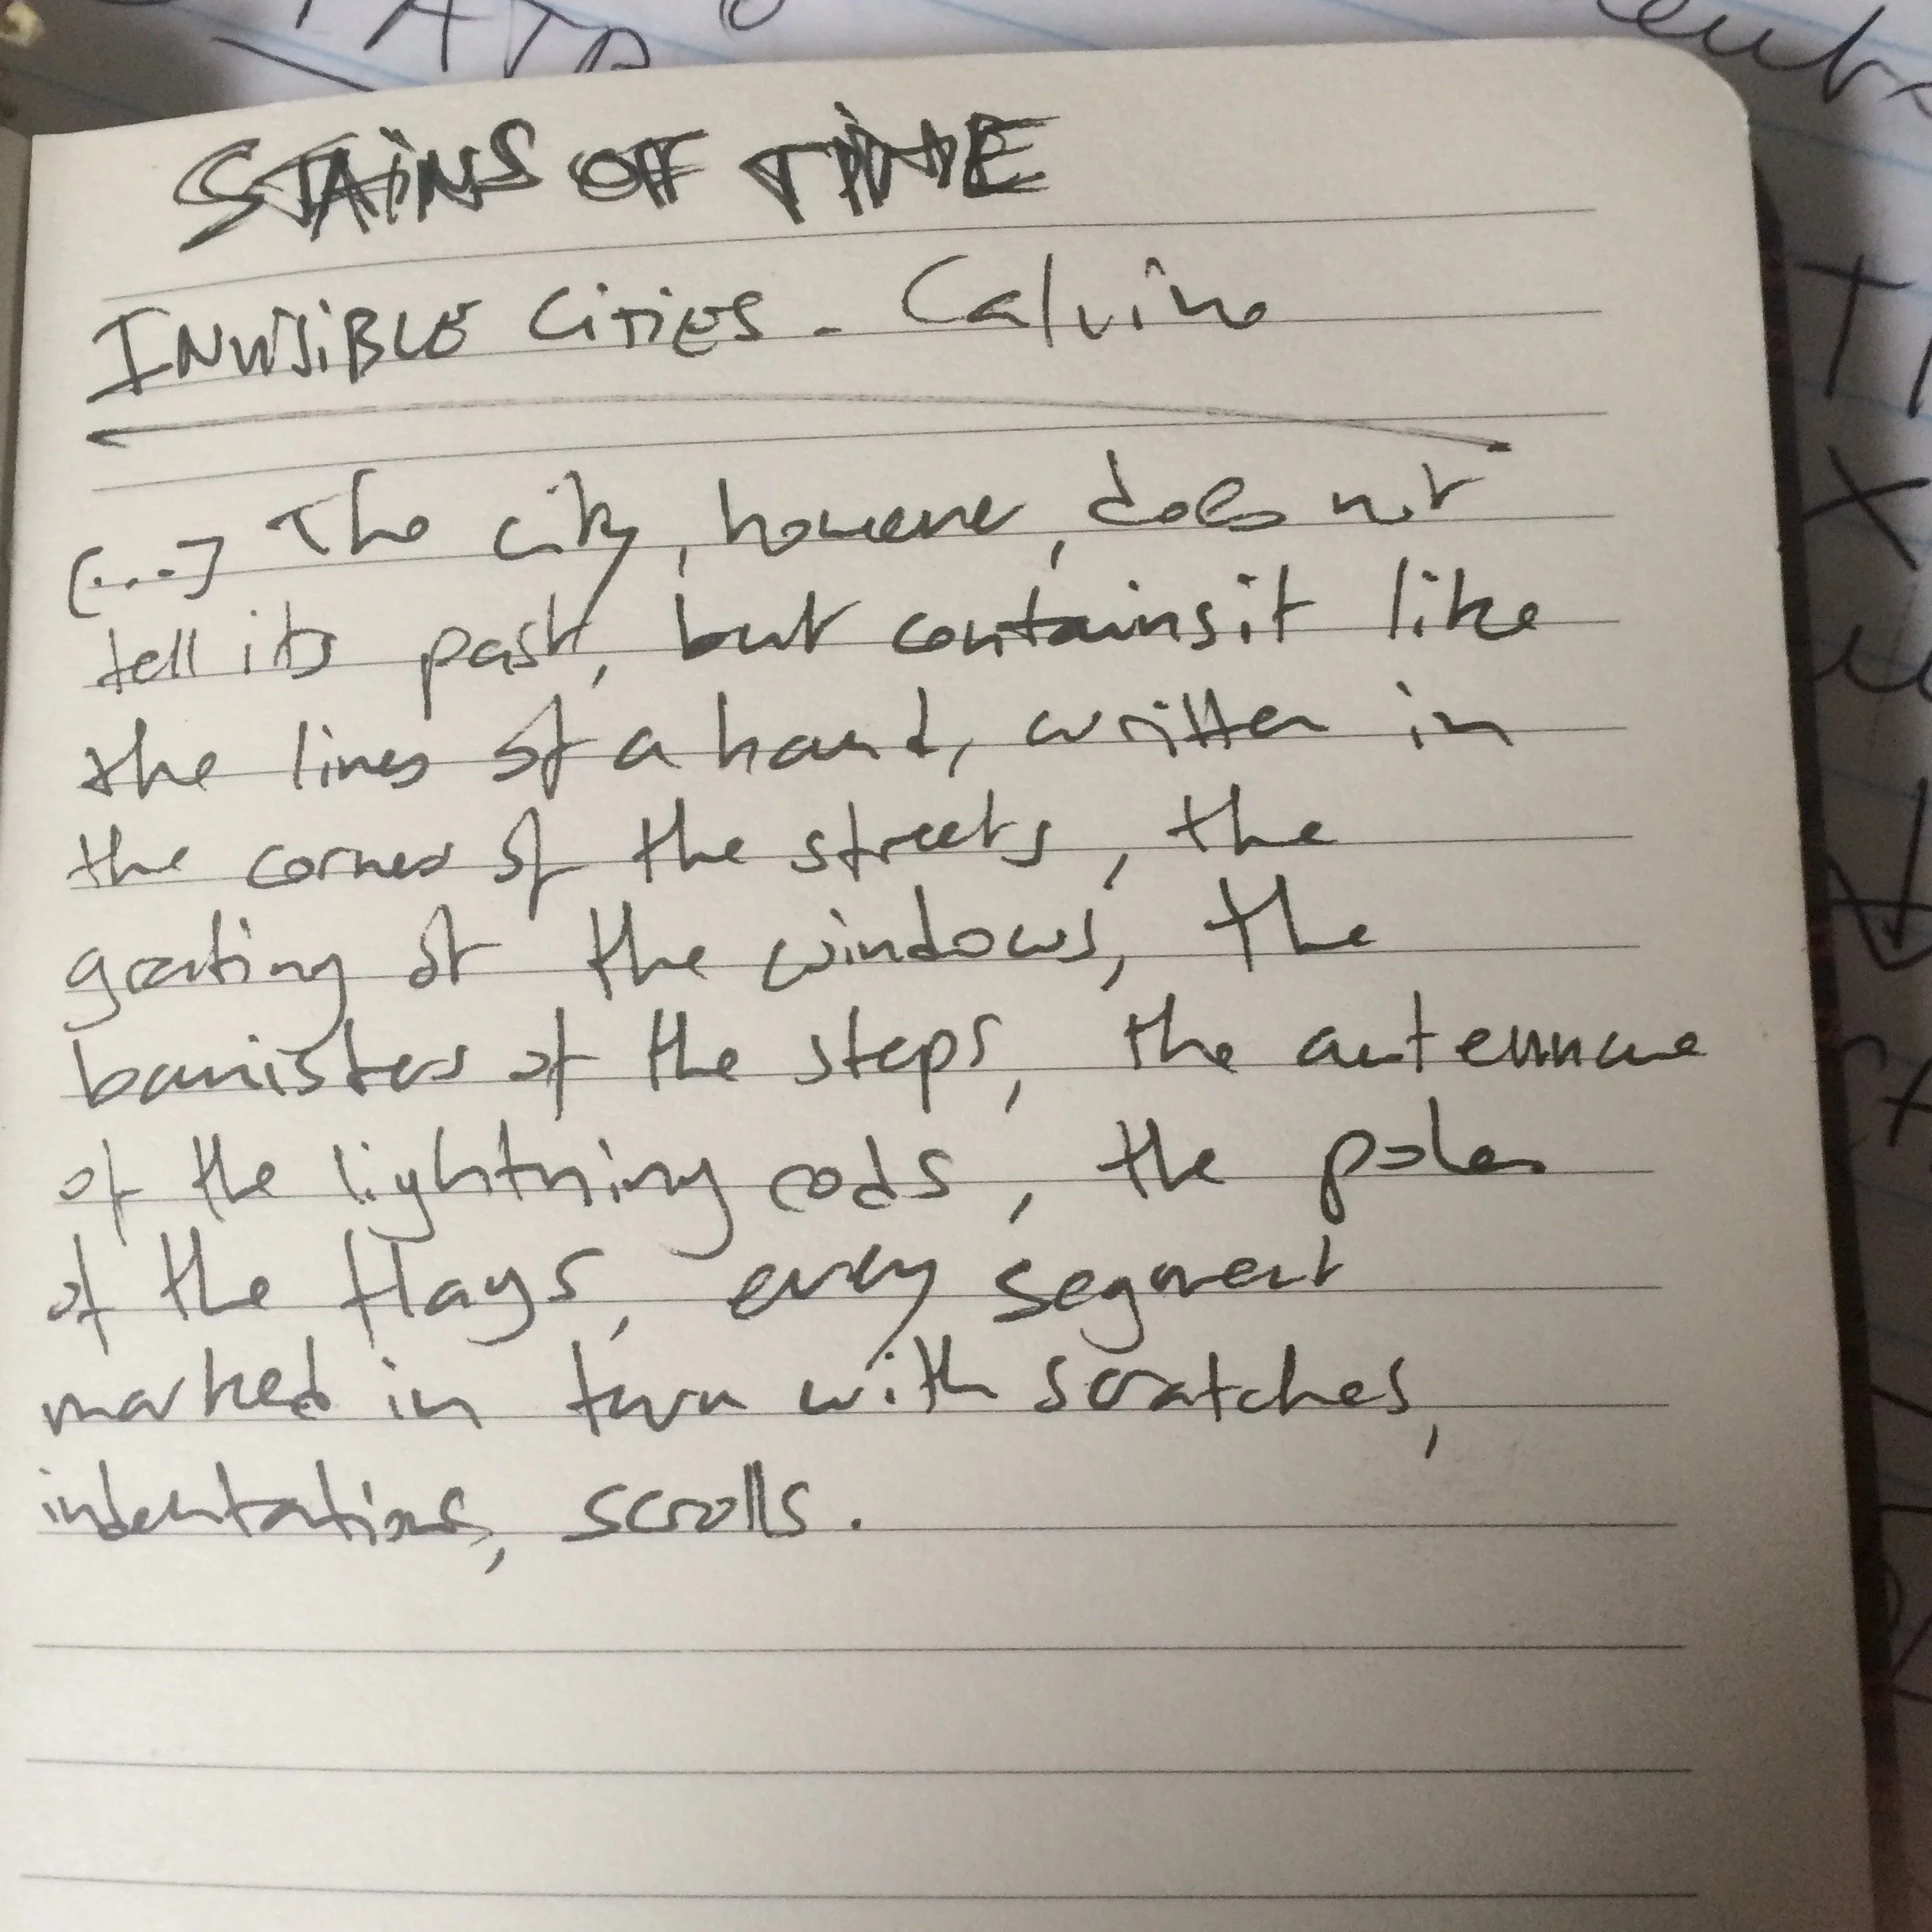 STAINS OF TIME
INVISIBLE CITIES - Calvino
[...] The city, however, does not
tell its past, but contains it like
the lines of a hand, written in
the corners of the streets, the
grating of the windows, the
banisters of the steps, the antennae
of the lightning rods, the poles
of the flags, every segment
marked in turn with scratches,
indentations, scrolls.